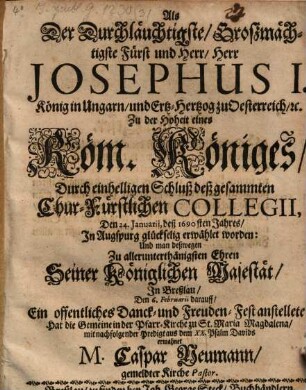 Als
Der Durchläuchtigste/ Großmäch-
tigste Fürst und Herr/ Herr
JOSEPHUS I.
König in Ungarn/ und Ertz-Hertzog zu Oesterreich/ ꝛc.
Zu der Hoheit eines
Röm. Königes/
Durch einhelligen Schluß deß gesammten
Chur-Fürstlichen COLLEGII,
Den 24. Januarii, deß 1690sten Jahres/
In Augspurg glückselig erwählet worden:
Und man deßwegen
Zu allerunterthänigsten Ehren
Seiner Königlichen Majestät/
In Breßlau/
Den 6. Februarii darauff/
Ein offentliches Danck- und Freuden-Fest anstellete
Hat die Gemeine in der Pfarr-Kirche zu St. Maria Magdalena/
mit nachfolgender Predigt aus dem XX. Psalm Davids
ermahnet
M. Caspar Neumann/
gemeldter Kirche Pastor.